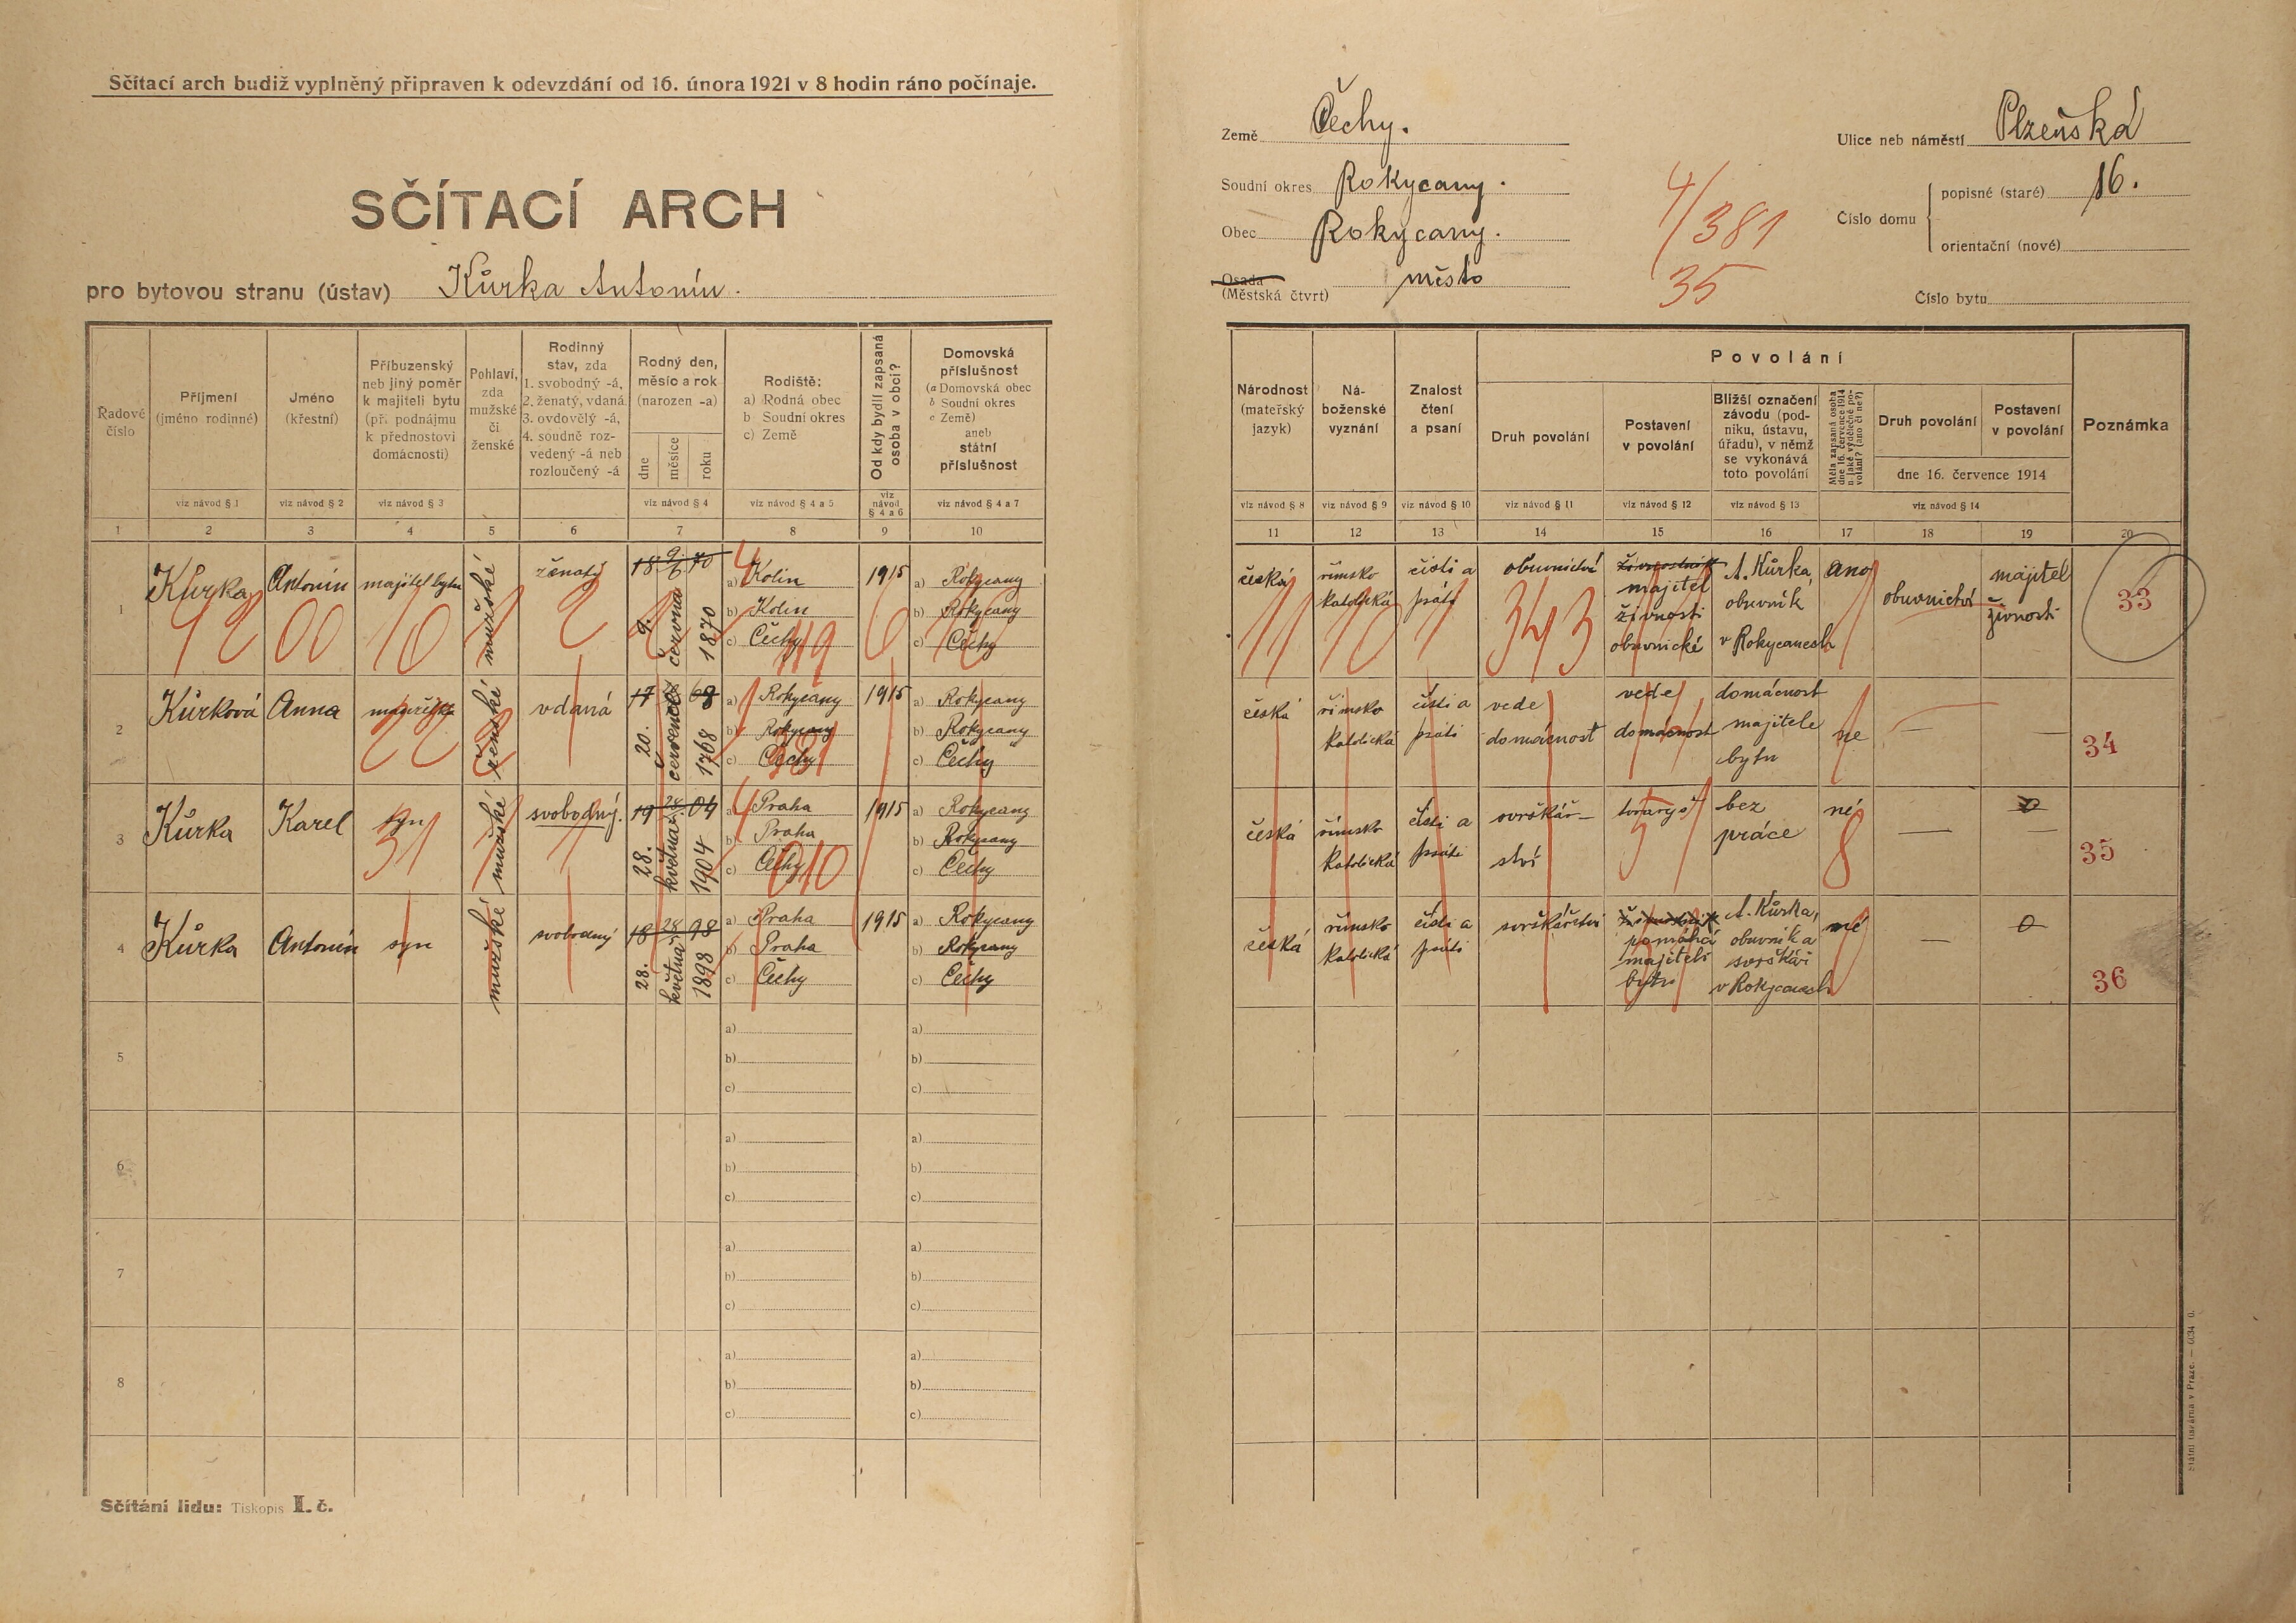 Sčítací arch budiž vyplněný připraven k odevzdání od 16. února 1921 v 8 hodin ráno počínaje.
SČÍTACÍ ARCH
pro bytovou stranu (ústav) Kůrka Antonín.
Země Čechy.
Soudní okres Rokycany.
Obec Rokycany.
Osada
(Městská čtvrt) město
4/381
35
Ulice neb náměstí Plzeňská
Číslo domu
popisné (staré) 16.
orientační (nové)
Číslo bytu
Řadové číslo
Příjmení (jméno rodinné)
Jméno (křestní)
Příbuzenský neb jiný poměr k majiteli bytu (při podnájmu k přednostovi domácnosti)
Pohlaví, zda mužské či ženské
Rodinný stav, zda 1. svobodný -á, 2. ženatý, vdaná 3. ovdovělý -á, 4. soudně rozvedený -á neb rozloučený -á
Rodný den, měsíc a rok (narozen -a)
dne měsíce roku
Rodiště: a) Rodná obec b Soudní okres c) Země
Od kdy bydlí zapsaná osoba v obci?
Domovská příslušnost (a Domovská obec b Soudní okres c Země) aneb státní příslušnost
viz návod § 1 viz návod § 2 viz návod § 3 viz návod § 4 viz návod § 4 a 5 viz návod § 4 a 6 viz návod § 4 a 7
1 2 3 4 5 6 7 8 9 10
Národnost (mateřský jazyk)
Náboženské vyznání
Znalost čtení a psaní
Povolání
Druh povolání
Postavení v povolání
Bližší označení závodu (podniku, ústavu, úřadu), v němž se vykonává toto povolání
Měla zapsaná osoba dne 16. července 1914 n. jaké výdělečné povolání? (ano či ne?)
Druh povolání
Postavení v povolání
dne 16. července 1914
Poznámka
viz návod § 8 viz návod § 9 viz návod § 10 viz návod § 11 viz návod § 12 viz návod § 13 viz návod § 14
11 12 13 14 15 16 17 18 19 20
1 Kůrka Antonín majitel bytu mužské ženatý 9. června 1870
a) Kolín
b) Kolín
c) Čechy
1915
a) Rokycany
b) Rokycany
c) Čechy
česká římsko katolická čísti a psáti obuvnictví majitel živnosti obuvnické A. Kůrka, obuvník v Rokycanech ano obuvnictví majitel živnosti 33
2 Kůrková Anna manželka ženské vdaná 20. července 1768
a) Rokycany
b) Rokycany
c) Čechy
1915
a) Rokycany
b) Rokycany
c) Čechy
česká římsko katolická čísti a psáti vede domácnost vede domácnost domácnost majitele bytu ne — — 34
3 Kůrka Karel syn mužské svobodný. 28. května 1904
a) Praha
b) Praha
c) Čechy
1915
a) Rokycany
b) Rokycany
c) Čechy
česká římsko katolická čísti a psáti svrškářství tovaryš bez práce né — — 35
4 Kůrka Antonín syn mužské svobodný 28. května 1898
a) Praha
b) Praha
c) Čechy
1915
a) Rokycany
b) Rokycany
c) Čechy
česká římsko katolická čísti a psáti svrškářství pomáhá majiteli bytu A. Kůrka, obuvník a svrškář v Rokycanech né — 36
5
a) a)
b) b)
c) c)
6
a) a)
b) b)
c) c)
7
a) a)
b) b)
c) c)
8
a) a)
b) b)
c) c)
Sčítání lidu: Tiskopis I. č.
Státní tiskárna v Praze. — 6034 0.